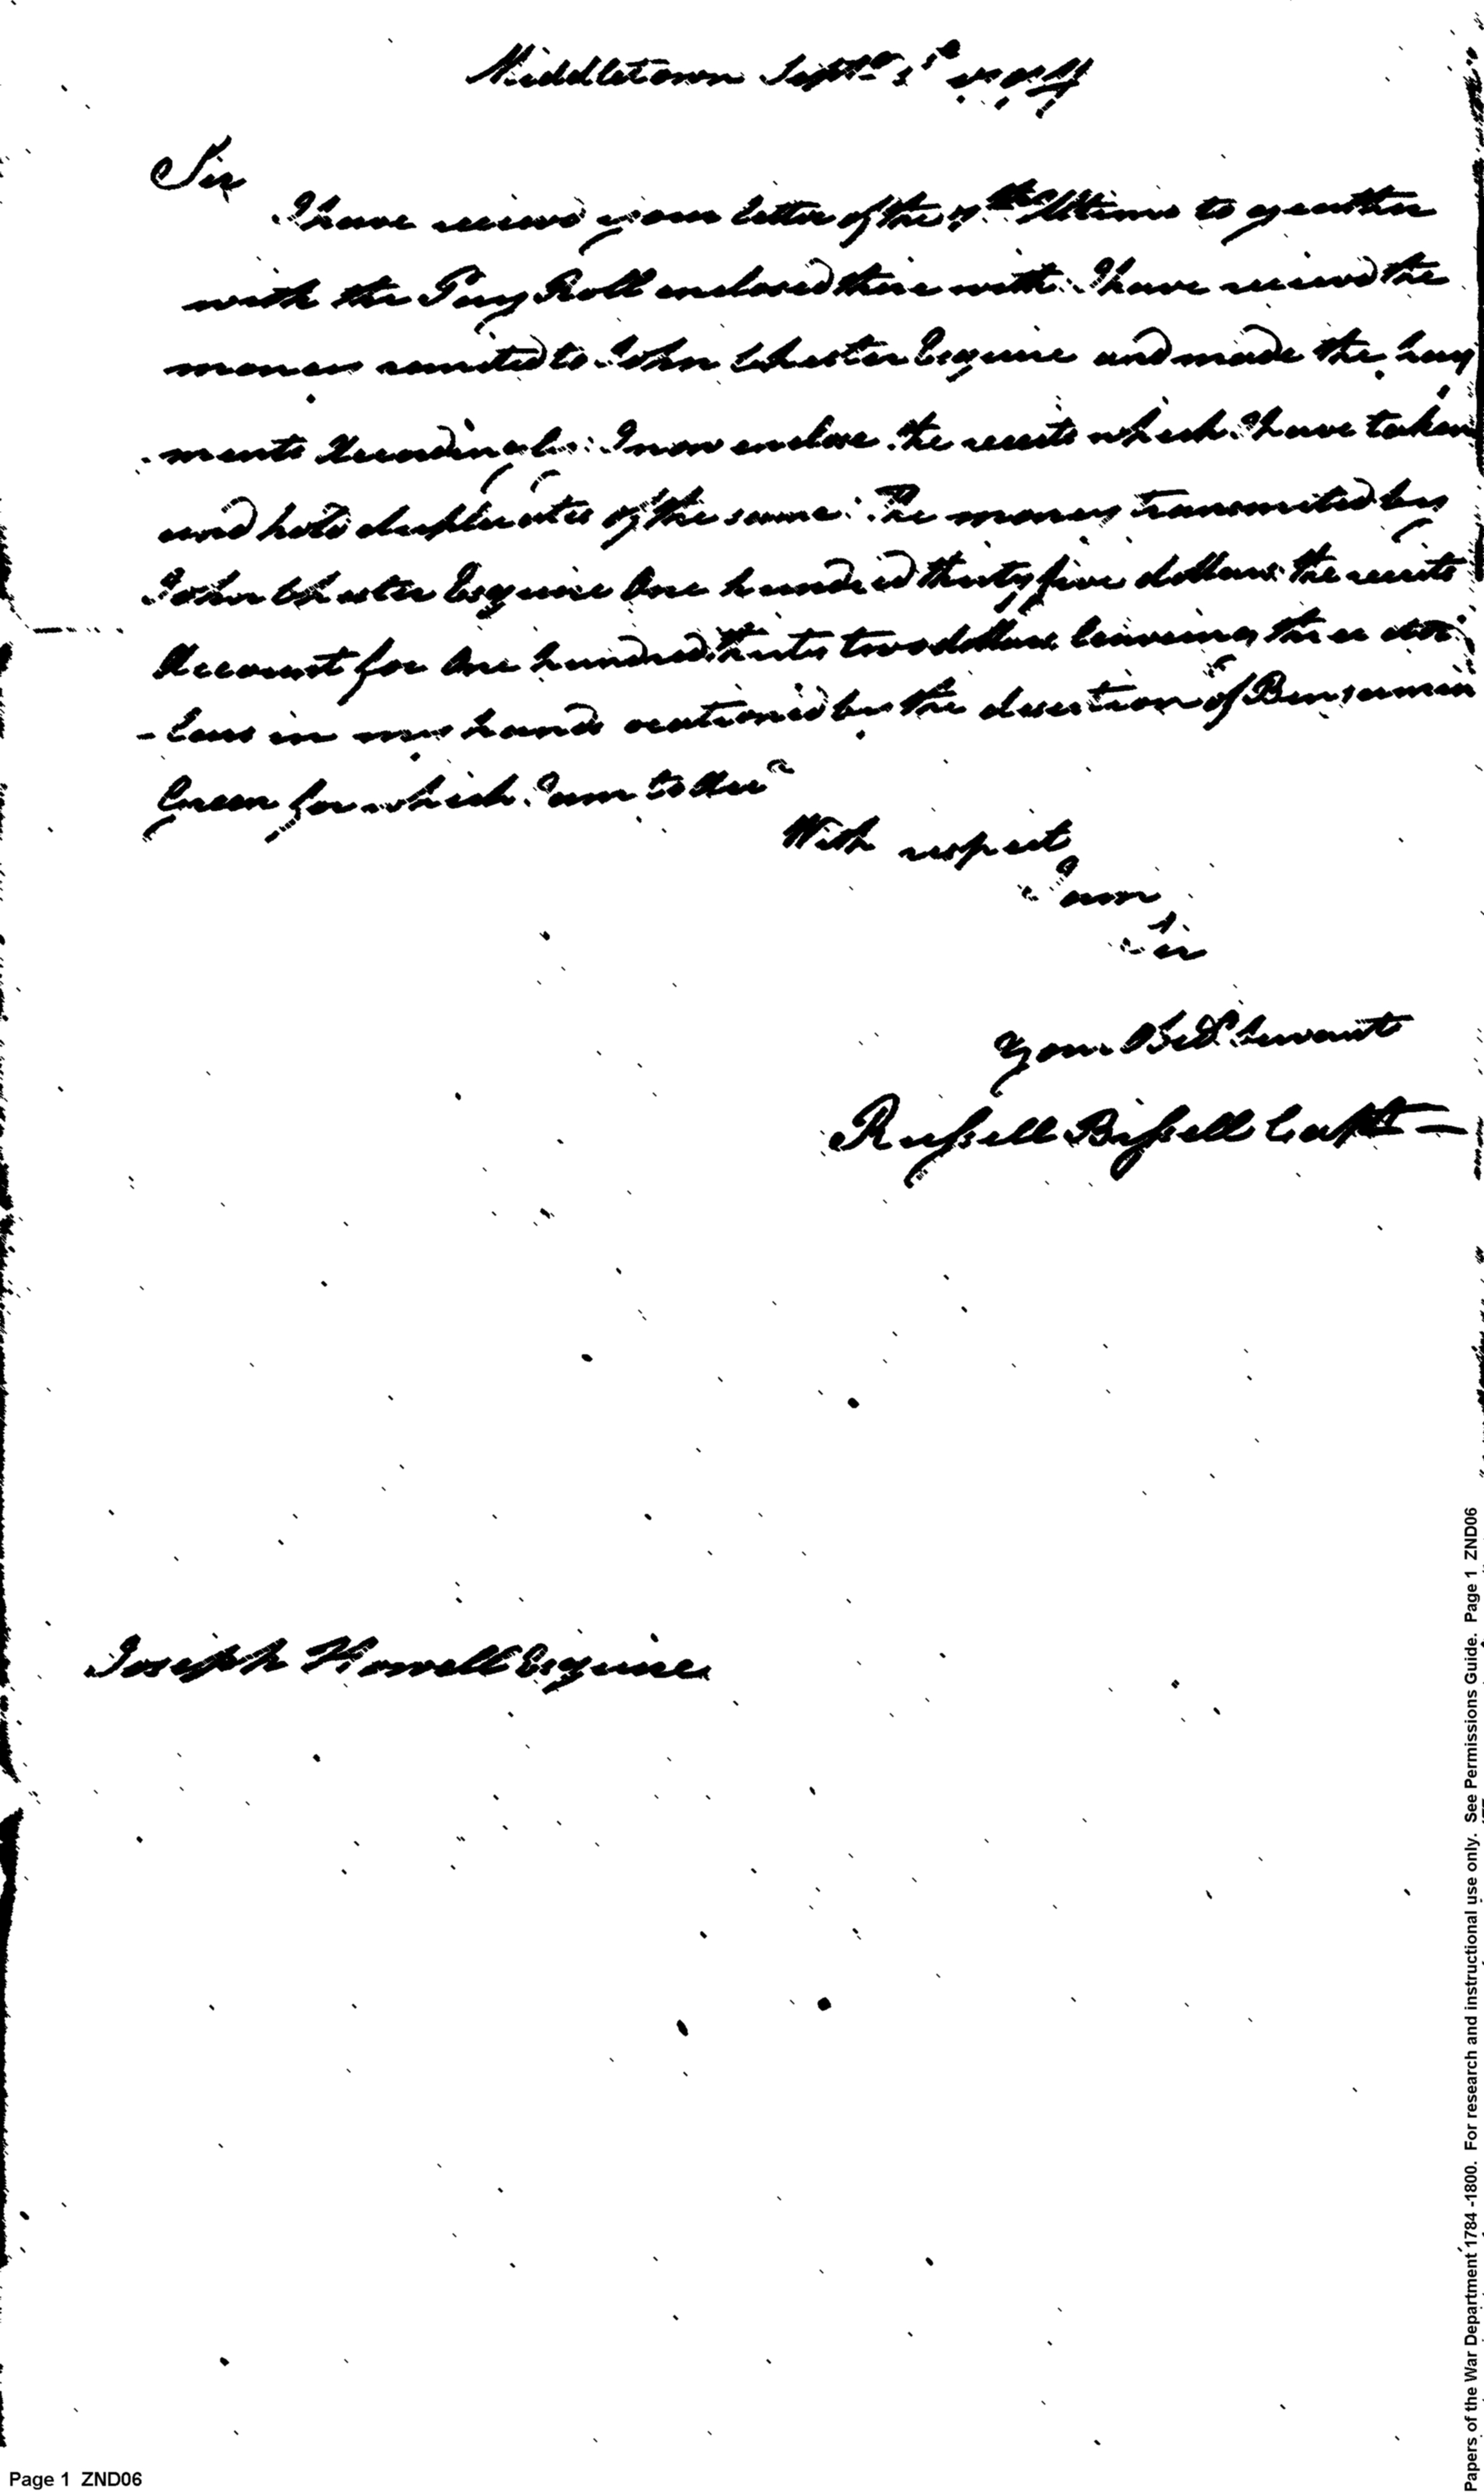 Middletown Septr 3d 1794
Sir
I have receivd your letter of the 7th Ultimo to geather
with the Pay Roll enclosed there with. I have receivd the
money remited to John Chester Esquire and made the pay
ments Accordingly: I now enclose the receits which I have taken
and hold duplicates of the same: The money transmited by
John Chester Esquire One hundred thirty five dollars the receits
Account for One hundred thirty two dollars leaveing three dol
-lars in my hands ocationed by the desertion of Benjamin
Green for which I am to Acct
With respect
I am
Sir
Your Bedt Servant
Russell Bissell Capt
Joseph Howell Esquire
Page 1 ZND06
Papers of the War Department 1784 -1800. For research and instructional use only. See Permissions Guide. Page 1 ZND06